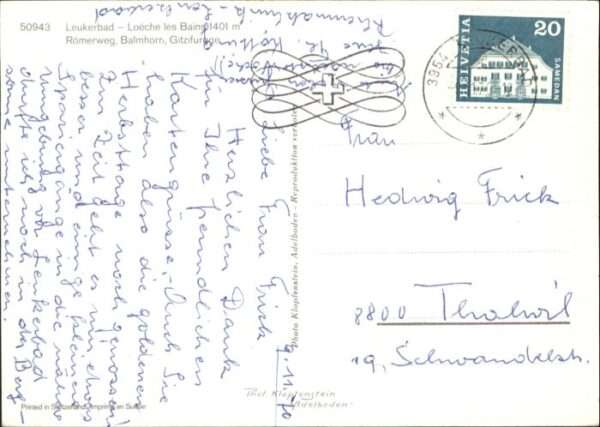 50943 Leukerbad – Loèche les Bains 1401 m
Römerweg, Balmhorn, Gitzifurgge
9.11.70
Liebe Frau Frick
Herzlichen Dank
für Ihre freundlichen
Kartengrüsse, – Auch Sie
haben also die goldenen
Herbsttage noch genossen!
Zur Zeit geht es mir etwas
besser und einige kleinere
Spaziergänge in die nähere
Umgebung von Leukerbad
durfte ich noch in der Berg-
sonne unternehmen.
HELVETIA
20
SAMEDAN
3954
Frau
Hedwig Frick
8800 Thalwil
19, Schwandelstr.
Photo Klopfenstein, Adelboden - Reproduktion verboten
Phot Klopfenstein
Adelboden
Printed in Switzerland, Imprimé en Suisse